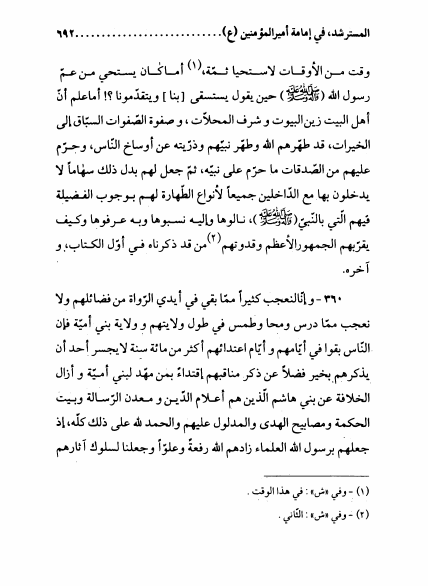 المسترشد، في إمامة أميرالمؤمنين (ع) ............................ ٦٩٢
وقت مـن الأوقـات لاستحيا ثـمّة، (١) أمـا كـان يستحي مـن عـمّ
رسول الله (ﷺ) حين يقول يستسقى [بنا] ويتقدّمونا ؟! أماعلم أنّ
أهل البيت زين البيوت و شرف المحلاّت ، و صفوة الصّفوات السبّاق إلى
الخيرات، قد طهّرهم الله وطهّر نبيّهم وذرّيته عن أوساخ النّاس، وحـرّم
عليهم من الصّدقات ما حرّم على نبيّه، ثمّ جعل لهم بدل ذلك سهاماً لا
يدخلون بها مع الدّاخلين جميعاً لأنواع الطّهارة لهـم بـوجوب الفـضيلة
فيهم الّتي بالنّبيّ (ﷺ)، نـالوها وإليـه نسبوها وبه عـرفوها وكـيف
يقرّبهم الجمهورالأعظم وقدوتهم (٢) من قد ذكرناه في أوّل الكتاب، و
آخره.
٣٦٠ - و إنّالنعجب كثيراً ممّا بقي في أيدي الرّواة من فضائلهم ولا
نعجب ممّا درس ومحا وطمس في طول ولايتهم و ولاية بني أميّة فإن
النّاس بقوا في أيّامهم و أيّام اعتدائهم أكثر من مائة سنة لايجسر أحد أن
يذكرهم بخير فضلاً عن ذكر مناقبهم إقتداءً بمن مهّد لبني أميّة و أزال
الخلافة عن بني هاشم الّذين هم أعلام الدّين و معدن الرّسالة وبيت
الحكمة ومصابيح الهدى والمدلول عليهم والحمد لله على ذلك كلّه، إذ
جعلهم برسول الله العلماء زادهم الله رفعةً وعلوّاً وجعلنا لسلوك آثارهم
(١) - وفي «ش» : في هذا الوقت .
(٢) - وفي «ش» : الثّاني .